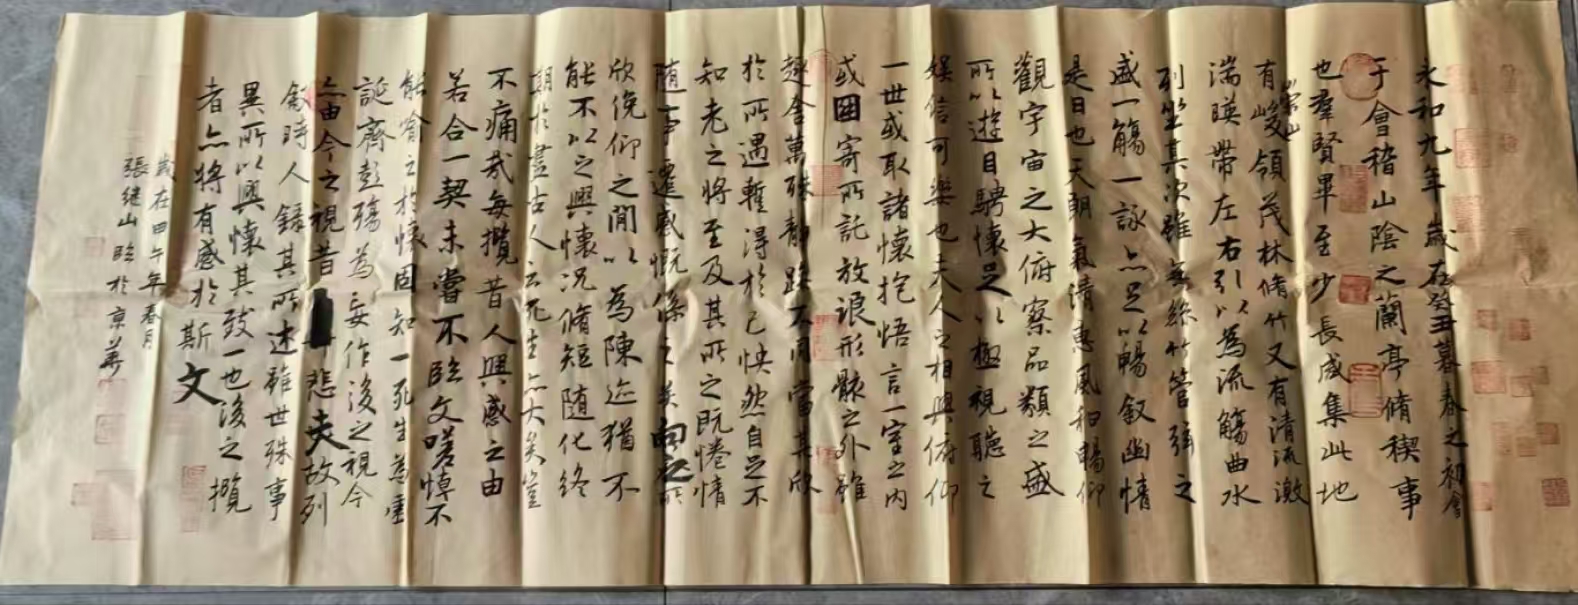 永和九年歲在癸丑暮春之初會
于會稽山陰之蘭亭脩稧事
也羣賢畢至少長咸集此地
有崇山峻領茂林脩竹又有清流激
湍暎帶左右引以為流觴曲水
列坐其次雖無絲竹管弦之
盛一觴一詠亦足以暢叙幽情
是日也天朗氣清惠風和暢仰
觀宇宙之大俯察品類之盛
所以遊目騁懷足以極視聽之
娛信可樂也夫人之相與俯仰
一世或取諸懷抱悟言一室之內
或因寄所託放浪形骸之外雖
趣舍萬殊靜躁不同當其欣
於所遇暫得於己怏然自足不
知老之將至及其所之既惓情
隨事遷感慨係之矣向之所
欣俛仰之間以為陳迹猶不
能不以之興懷況脩短隨化終
期於盡古人云死生亦大矣豈
不痛哉每攬昔人興感之由
若合一契未嘗不臨文嗟悼不
能喻之於懷固知一死生為虛
誕齊彭殤為妄作後之視今
亦由今之視昔悲夫故列
敘時人錄其所述雖世殊事
異所以興懷其致一也後之攬
者亦將有感於斯文
歲在甲午年春月
張继山臨於京華